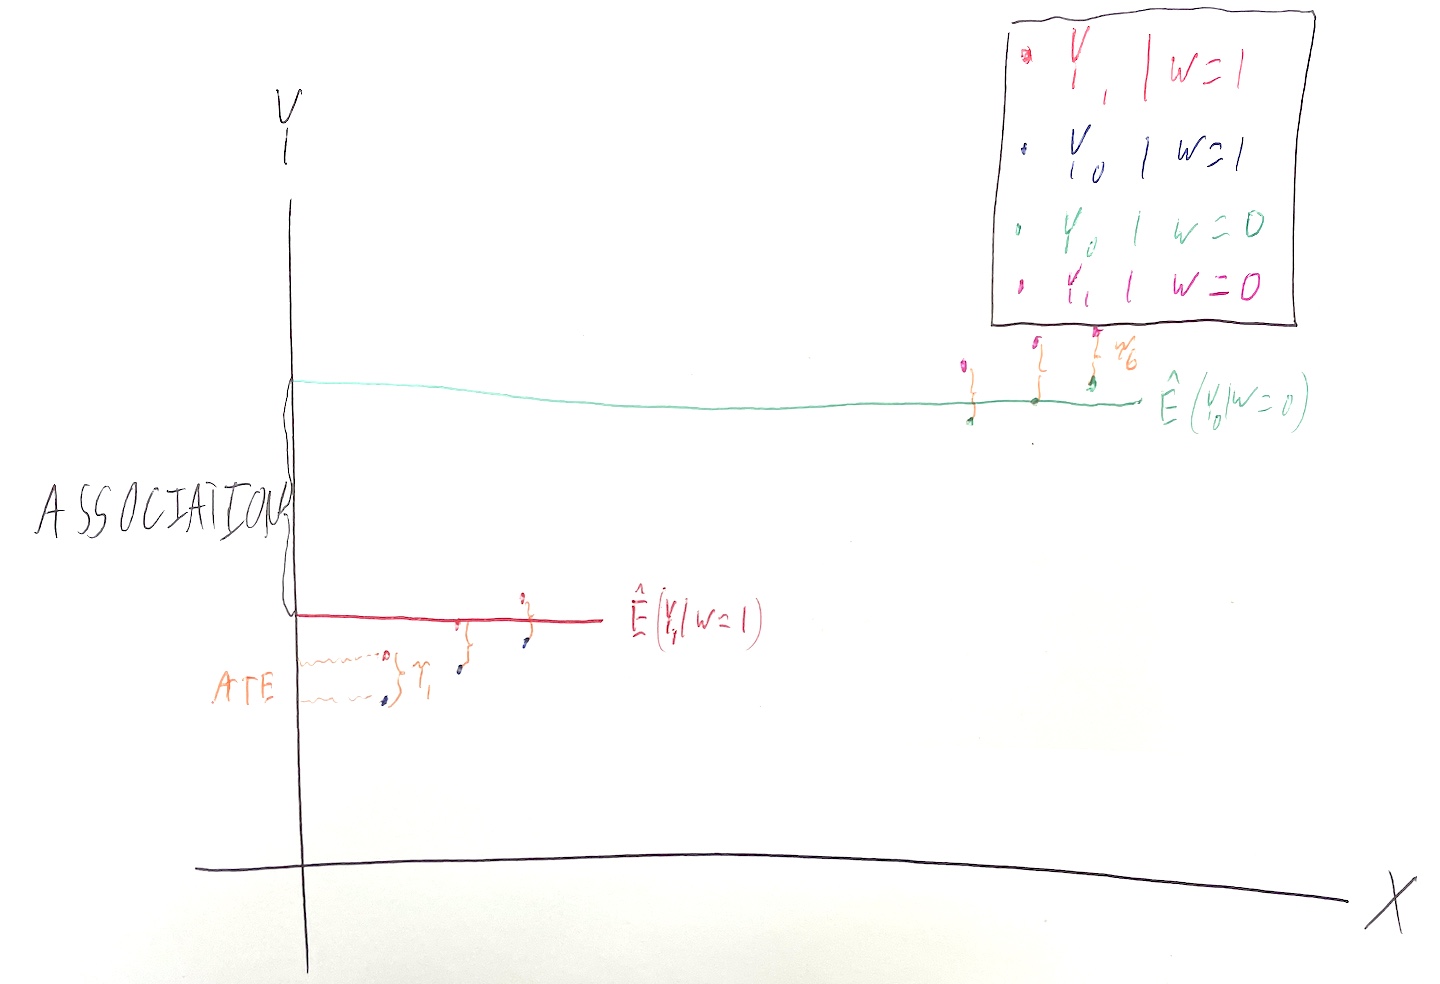 Y
Y₁ | W=1
Y₀ | W=1
Y₀ | W=0
Y₁ | W=0
γ₀
Ê(Y₀|W=0)
ASSOCIATION
Ê(Y₁|W=1)
ATE
γ₁
X